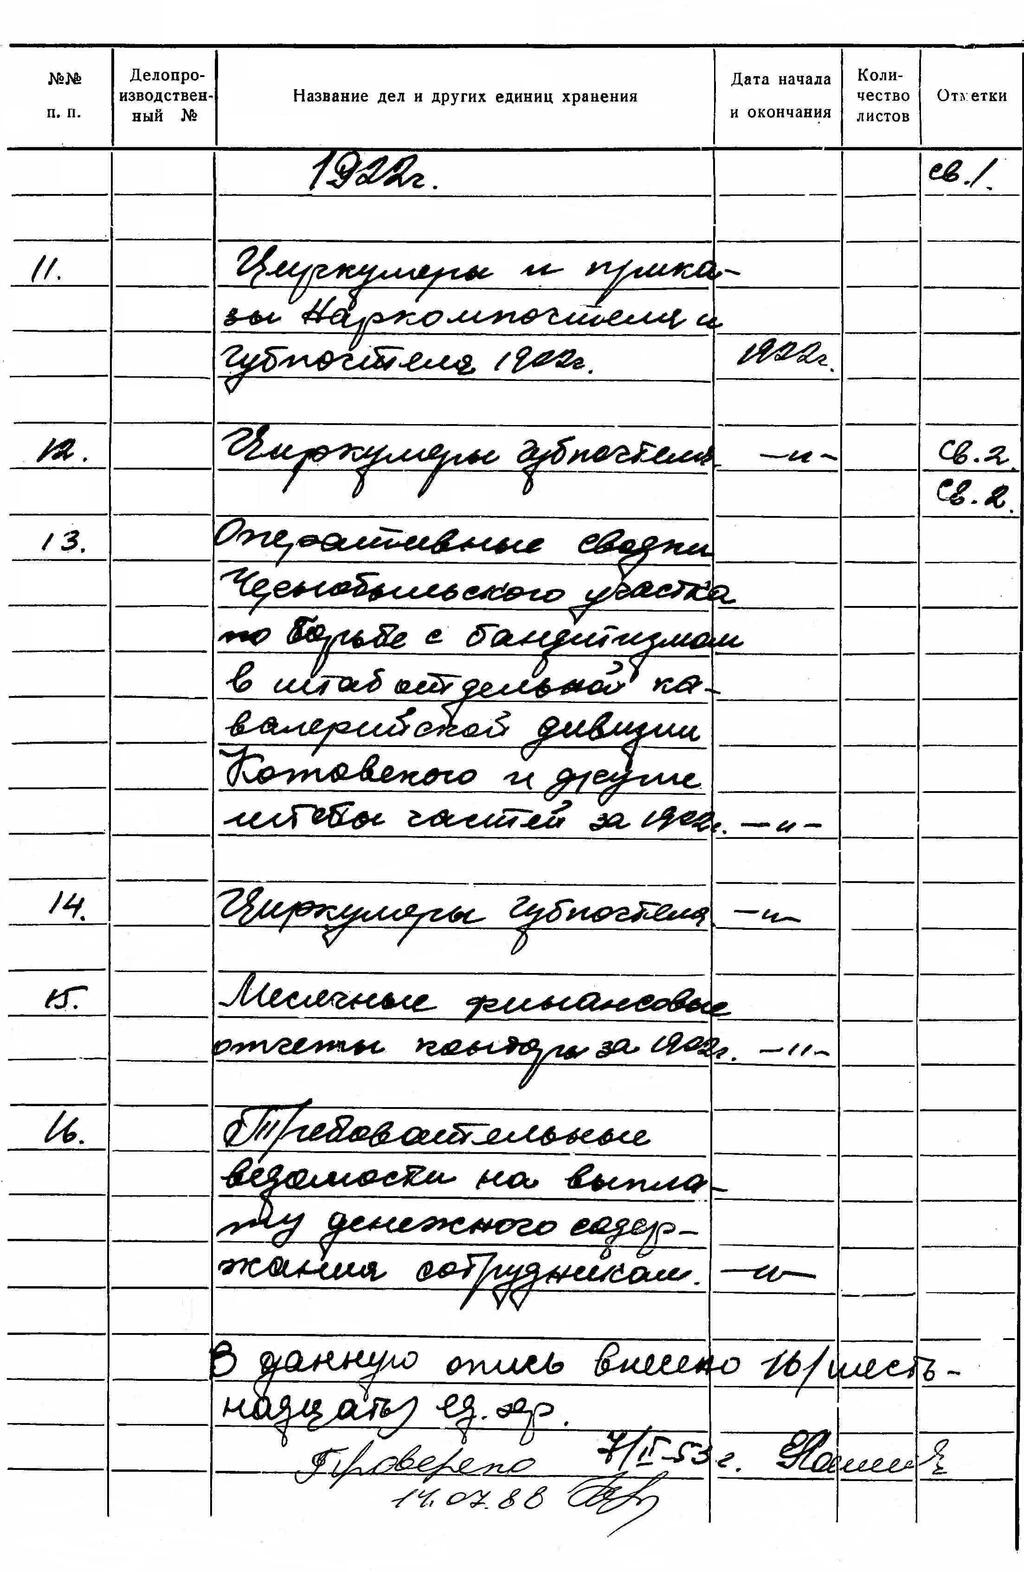 №№ п. п. Делопро-изводствен-ный № Название дел и других единиц хранения Дата начала и окончания Коли-чество листов Отметки
1922г. св.1.
11. Циркуляры и прика-
зы Наркомпочтеля и
губпочтеля 1922г. 1922г.
12. Циркуляры губпочтеля. -"- св.2.
св.2.
13. Оперативные сводки
Чернобыльского участка
по борьбе с бандитизмом
в штаб отдельной ка-
валерийской дивизии
Котовского и другие
штабы частей за 1922г. -"-
14. Циркуляры губпочтеля. -"-
15. Месячные финансовые
отчеты конторы за 1922г. -"-
16. Требовательные
ведомости на выпла-
ту денежного содер-
жания сотрудникам. -"-
В данную опись внесено 16/шесть-
надцать/ ед. хр.
7/II-53г.
Проверено
14.07.88